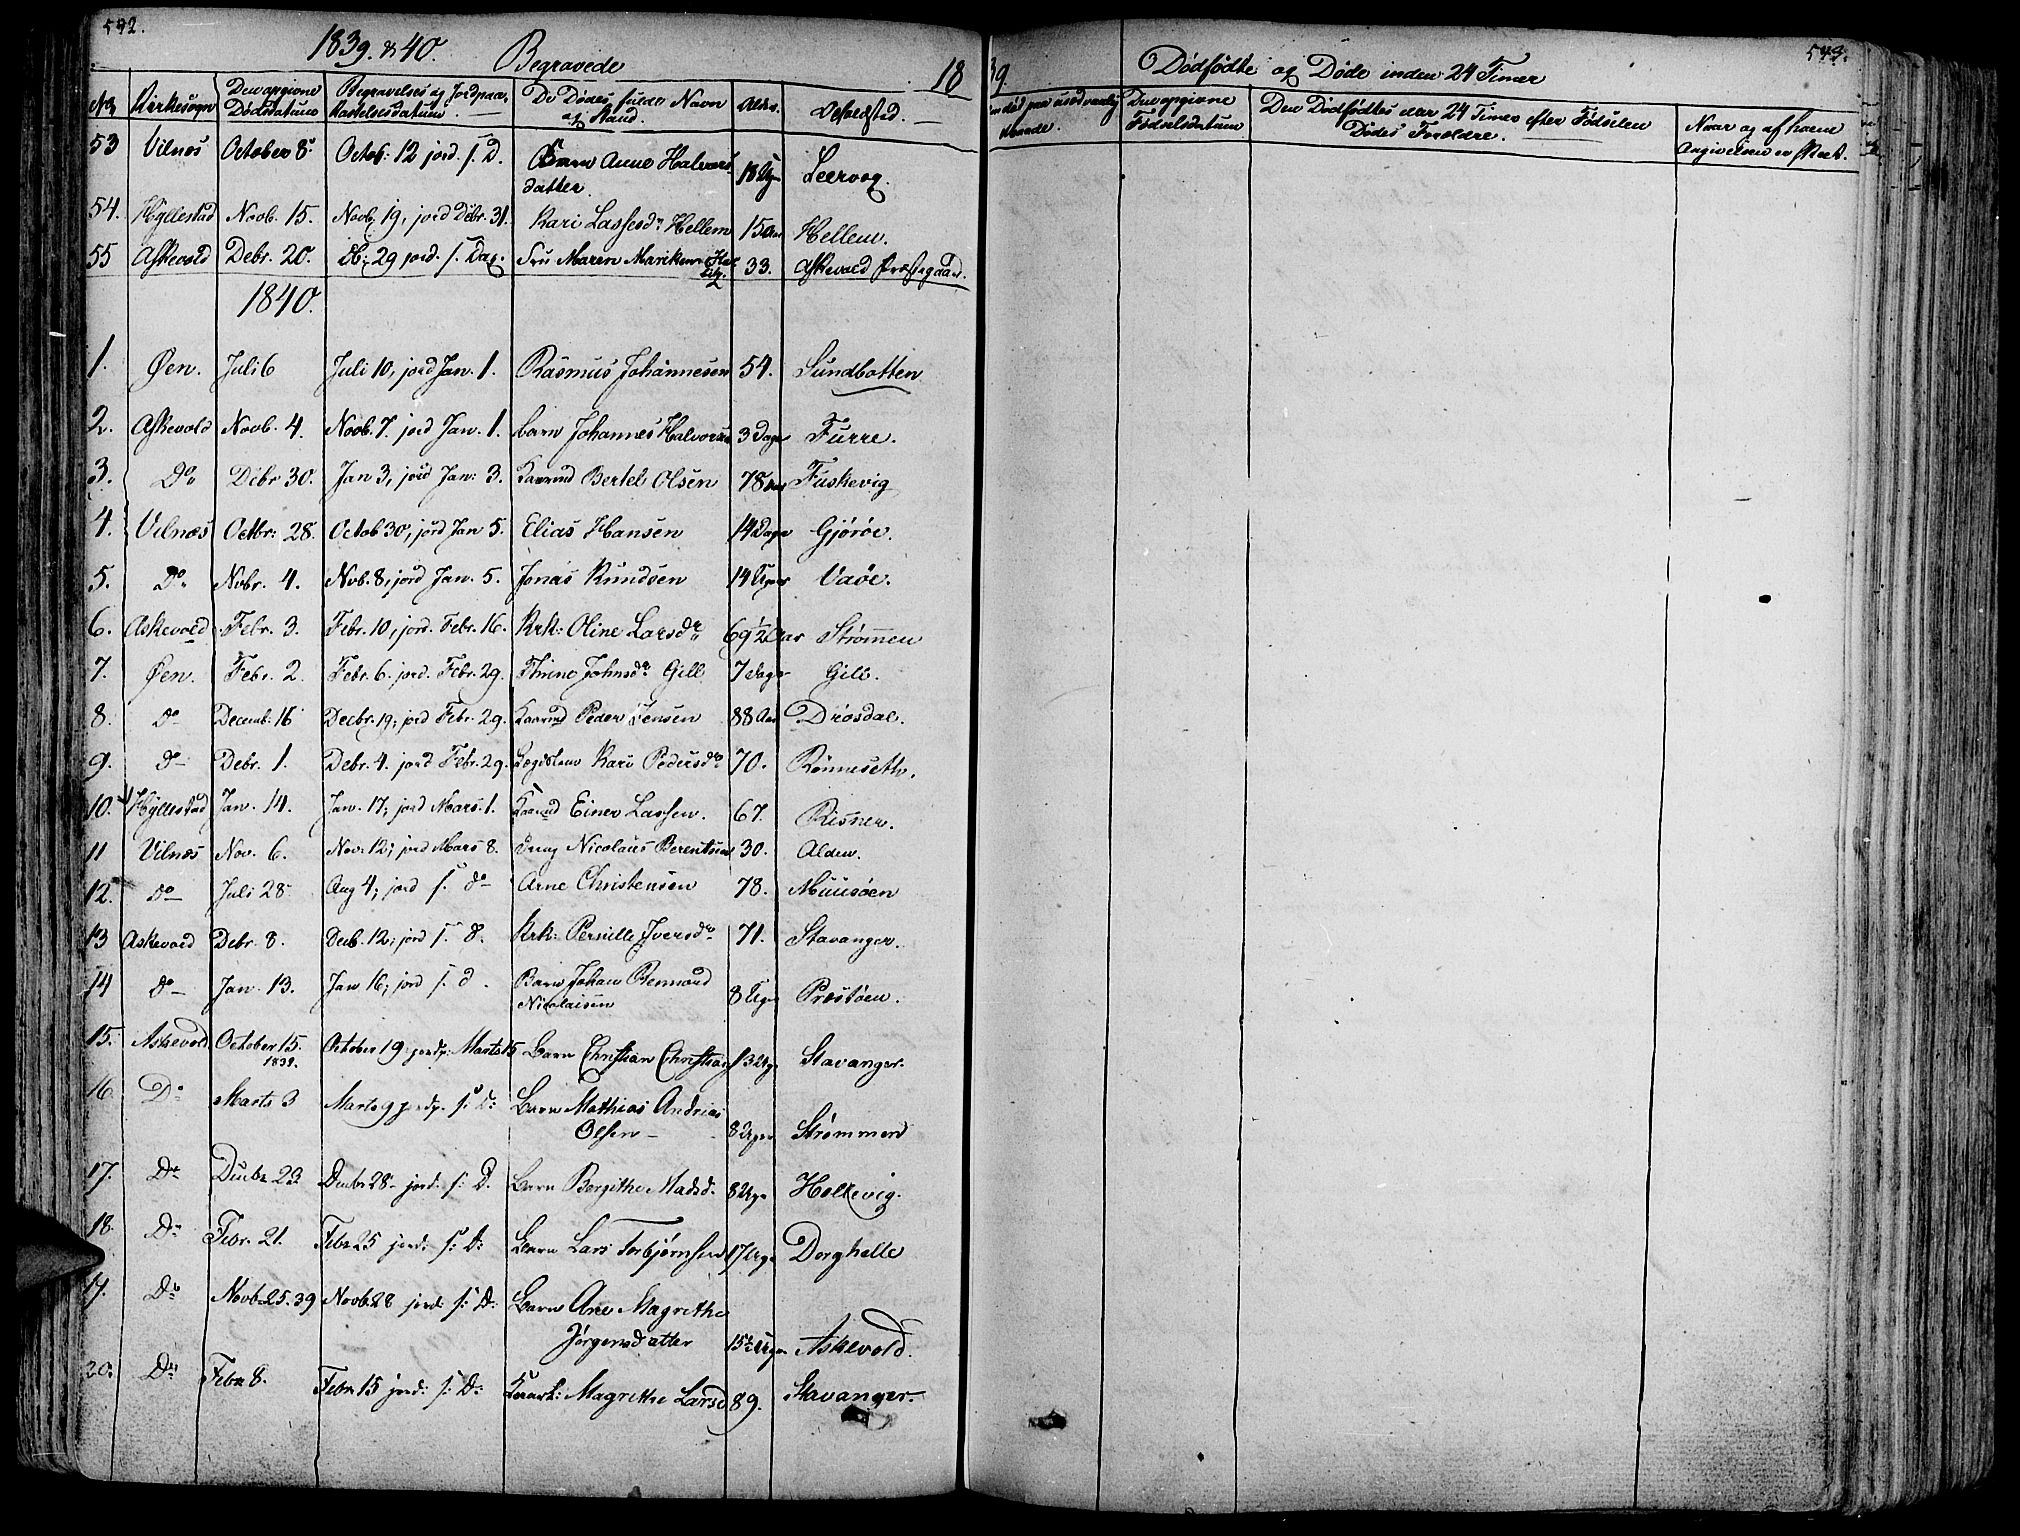 592.
1839. & 40. Begravede 18
No Kirkesogn Den opgivne Dødsdatum Begravelses og Jordpaakastelsesdatum De Dødes fulde Navn og Stand. Alder. Opholdsted.
53 Vilnes October 8 Octob: 12 jord. s. D. Barn Anne Halvors
datter 18 Ug Leervog.
54. Hyllestad Novb. 15. Novb 19, jord Debr. 31. Kari Lassesdr Hellem 15 Aar Hellem.
55 Askevold Debr. 20. Db. 29 jord. s. Dag. Fru Maren Mariken 33. Askevold Præstegaard.
1840.
1. Øen. Juli 6 Juli 10, jord Jan. 1. Rasmus Johannesen 54. Sundbotten
2. Askevold Novb. 4. Novb. 7. jord Jan. 1. barn Johannes Halvorsen 3 Dage Furre.
3. Do Debr 30. Jan 3, jord Jan: 3. Kaarmd Bertel Olsen 78 Aar Fuskevig
4. Vilnæs Octbr: 28. Octob 30, jord Jan 5. Elias Hansen 14 Dage Gjørøe.
5. Do Nobr. 4. Nvb. 8, jord Jan. 5. Jonas Knudsen 14 Uger Vaøe.
6. Askevold Febr. 3. Febr. 10, jord. Febr. 16. Krk: Oline Larsdr 69 1/2 Aar Strømmen
7. Øen. Febr. 2. Febr. 6. jord. Febr. 29. Thrine Johnsdr Gill 7 Dage Gill.
8. do Decemb: 16 Decbr. 19; jord Febr. 29. Kaarmd Peder Jensen 88 Aar Drosdal.
9. do Debr. 1. Debr. 4. jord Febr. 29. Lægdslem Kari Pedersdr 70. Rönneseth.
10. Hyllestad Jan. 14. Jan. 17; jord Mars. 1. Kaarmd Einer Lassen. 67. Risner.
11 Vilnæs Nov. 6. Nov. 12; jord Mars 8. Nicolaus Berentsen 30. Alden.
12. do Juli 28 Aug 4; jord s. do Arne Christensen 78. Muusöen
13 Askevold Debr. 8. Decb. 12; jord s. 8. Krk: Pernille Iversdr 71. Stavanger.
14 do Jan. 13. Jan 16; jord s. d. Barn Johan Remnord
Nicolaisen 8 Uger Præstøen.
15. Askevold October 15.
1839. October 19 jordp: Marts 15 Barn Christian Christians 13 Ug Stavanger.
16. Do Marts 3 Marts 9 jordp. s: D: Barn Mathias Andrias
Olsen 8 Uger Strømmen
17. Do Decbr 23 Decbr 28 jord. s: D. Barn Bergithe Madsd. 8 Uge Holtevig.
18. Do Febr. 21. Febr 25 jord: s: D: Barn Lars Torbjørnsen 17 Uge Dorghelle
19. Do Novb. 25. 39 Novb. 28 jord: s: D: Barn Ane Magrethe
Jørgensdatter 15 1/2 Uger Askevold.
20. Do Febr 8. Febr. 15 jord: s: D: Magrethe Larsd 89. Stavanger.
39 573.
Dødfødte og Døde inden 24 Timer
død paa usædvanlig Maade. Den opgivne Fødselsdatum Den Dødfødtes eller 24 Timer efter Fødselen Dødes Forældre. Naar og af hvem Angivelsen er skeet.